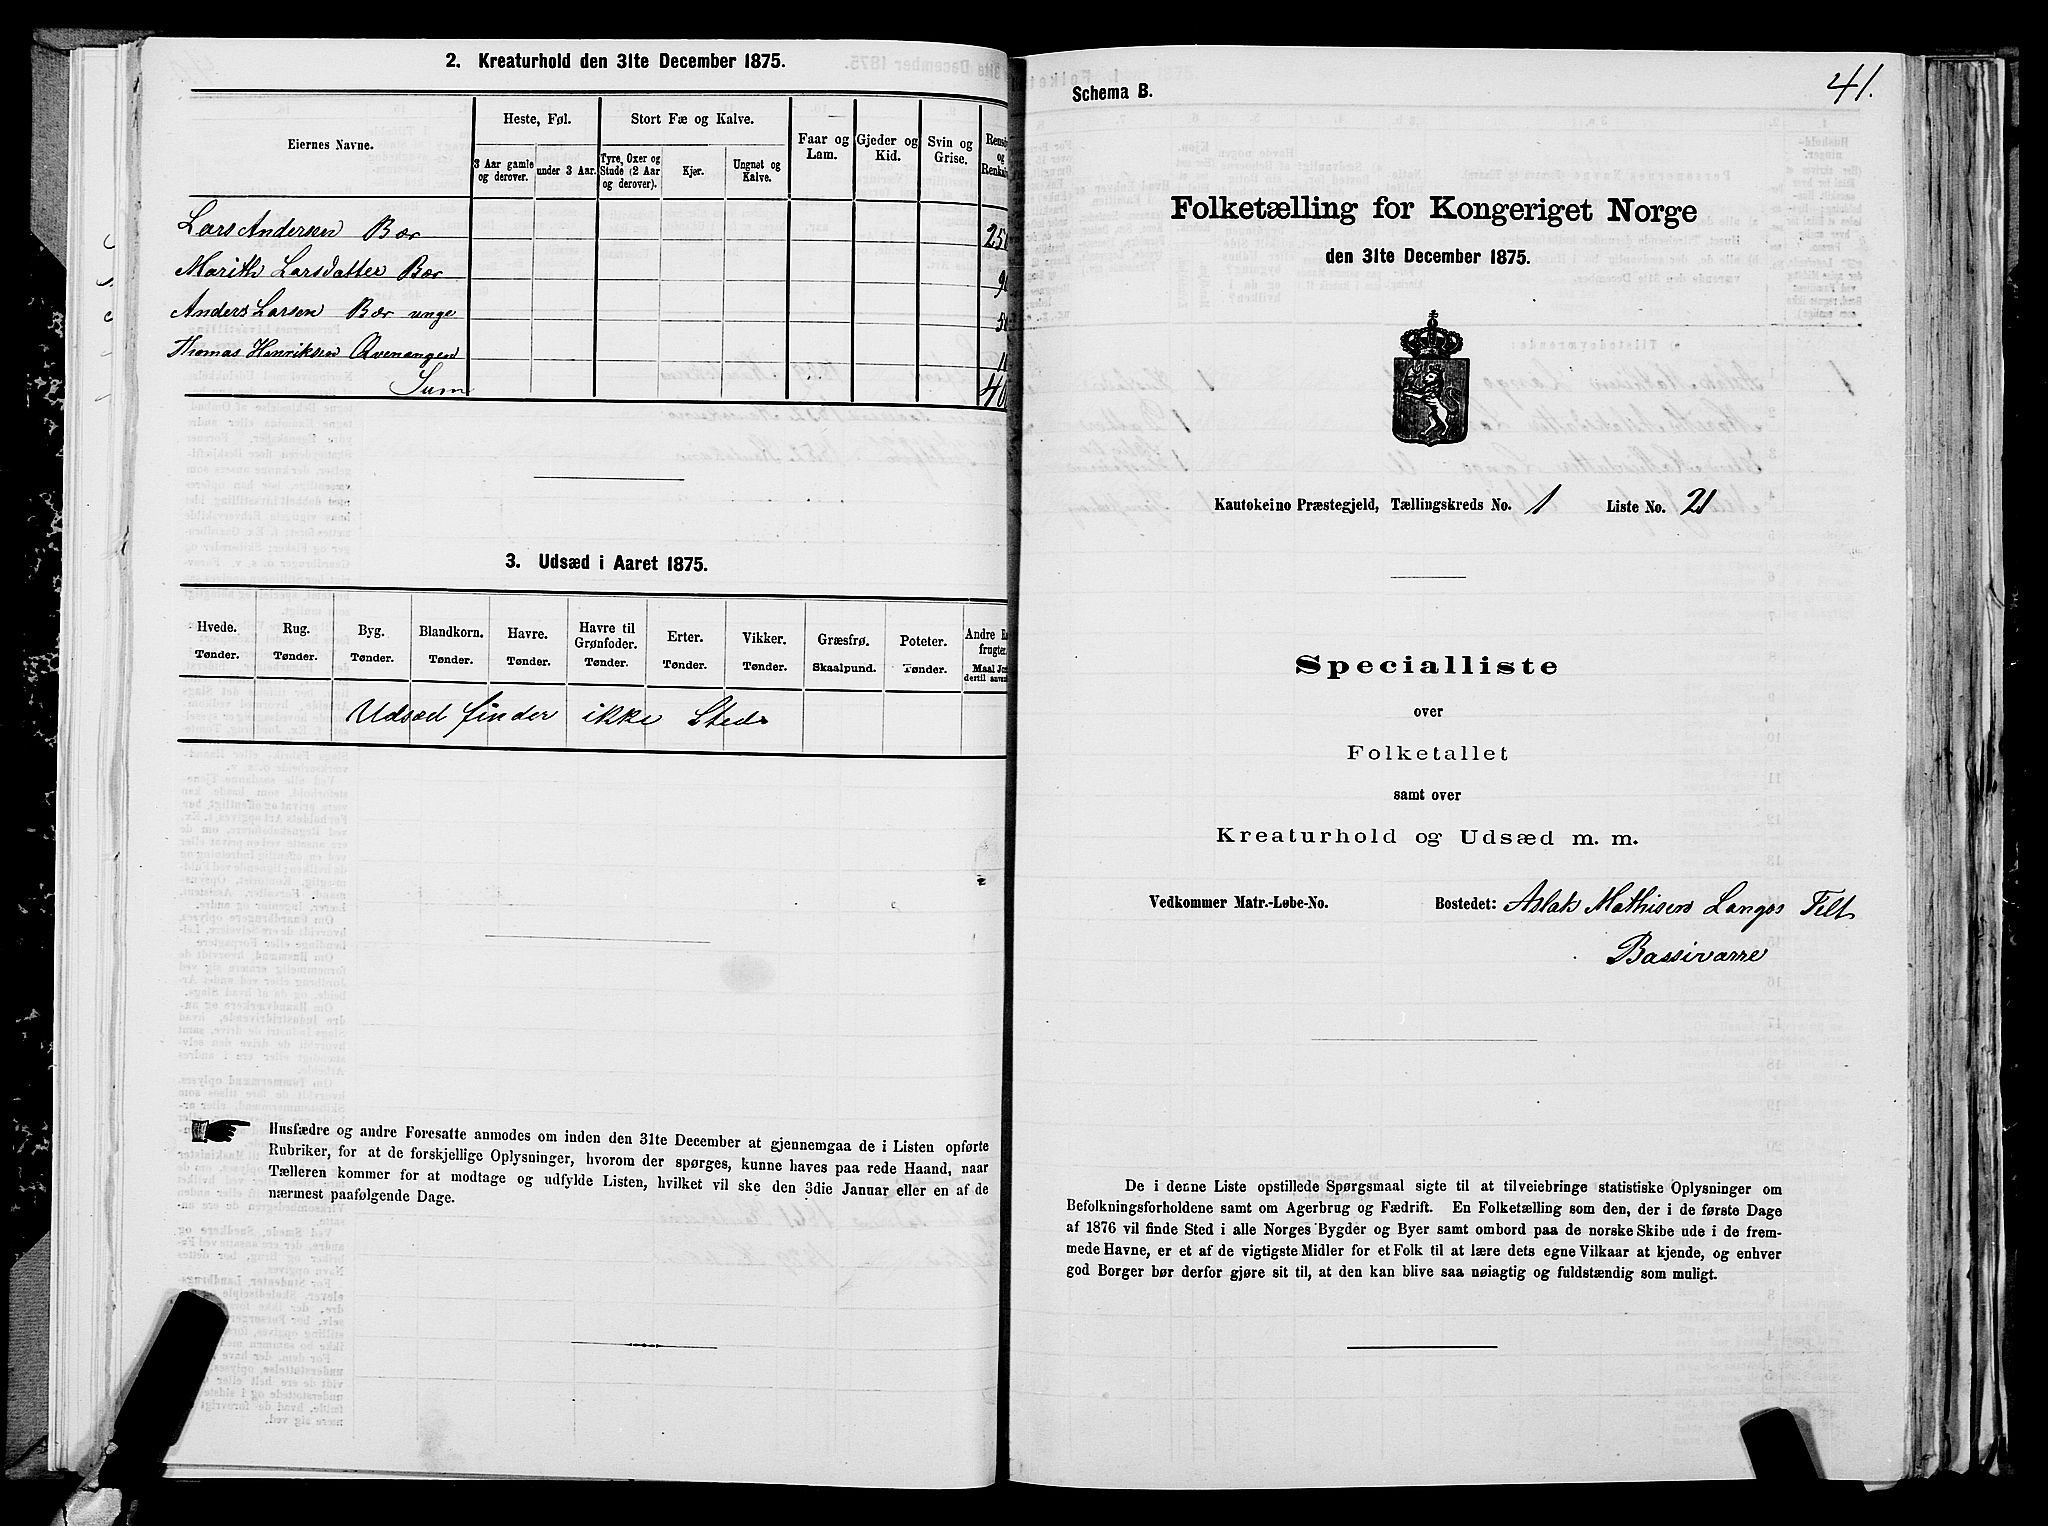 2. Kreaturhold den 31te December 1875.
Eiernes Navne.
Heste, Føl.
Stort Fæ og Kalve.
Faar og Lam.
Gjeder og Kid.
Svin og Grise.
og
3 Aar gamle og derover.
under 3 Aar.
Tyre, Oxer og Stude (2 Aar og derover).
Kjør.
Ungnøt og Kalve.
Lars Andersen Bær
Marith Larsdatter Bær
Anders Larsen Bær unge
Thomas Henriksen Qvenangen
Sum
3. Udsæd i Aaret 1875.
Hvede. Rug. Byg. Blandkorn. Havre. Havre til Grønfoder. Erter. Vikker. Græsfrø. Poteter. Andre
Tønder. Tønder. Tønder. Tønder. Tønder. Tønder. Tønder. Tønder. Skaalpund. Tønder.
Udsæd finder ikke Sted
Husfædre og andre Foresatte anmodes om inden den 31te December at gjennemgaa de i Listen opførte
Rubriker, for at de forskjellige Oplysninger, hvorom der spørges, kunne haves paa rede Haand, naar
Tælleren kommer for at modtage og udfylde Listen, hvilket vil ske den 3die Januar eller en af de
nærmest paafølgende Dage.
Schema B.
41.
Folketælling for Kongeriget Norge
den 31te December 1875.
Kautokeino Præstegjeld, Tællingskreds No. 1 Liste No. 21
Specialliste
over
Folketallet
samt over
Kreaturhold og Udsæd m. m.
Vedkommer Matr.-Løbe-No. Bostedet: Aslak Mathisen Langos Telt
Bassivarre
De i denne Liste opstillede Spørgsmaal sigte til at tilveiebringe statistiske Oplysninger om
Befolkningsforholdene samt om Agerbrug og Fædrift. En Folketælling som den, der i de første Dage
af 1876 vil finde Sted i alle Norges Bygder og Byer samt ombord paa de norske Skibe ude i de frem-
mede Havne, er et af de vigtigste Midler for et Folk til at lære dets egne Vilkaar at kjende, og enhver
god Borger bør derfor gjøre sit til, at den kan blive saa nøiagtig og fuldstændig som muligt.